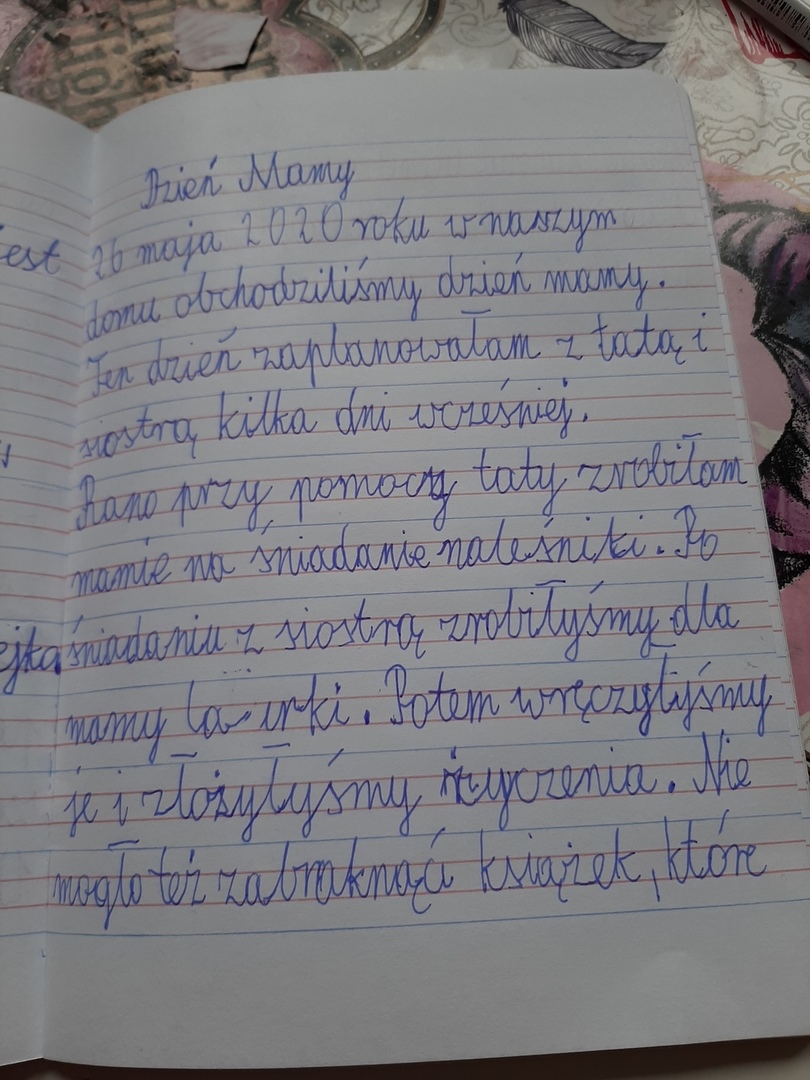 Dzień Mamy
26 maja 2020 roku w naszym
domu obchodziliśmy dzień mamy.
Ten dzień zaplanowałam z tatą i
siostrą kilka dni wcześniej.
Rano przy pomocy taty zrobiłam
mamie na śniadanie naleśniki. Po
śniadaniu z siostrą zrobiłyśmy dla
mamy laurki. Potem wręczyłyśmy
je i złożyłyśmy życzenia. Nie
mogło też zabraknąć książek, które
est
ejka